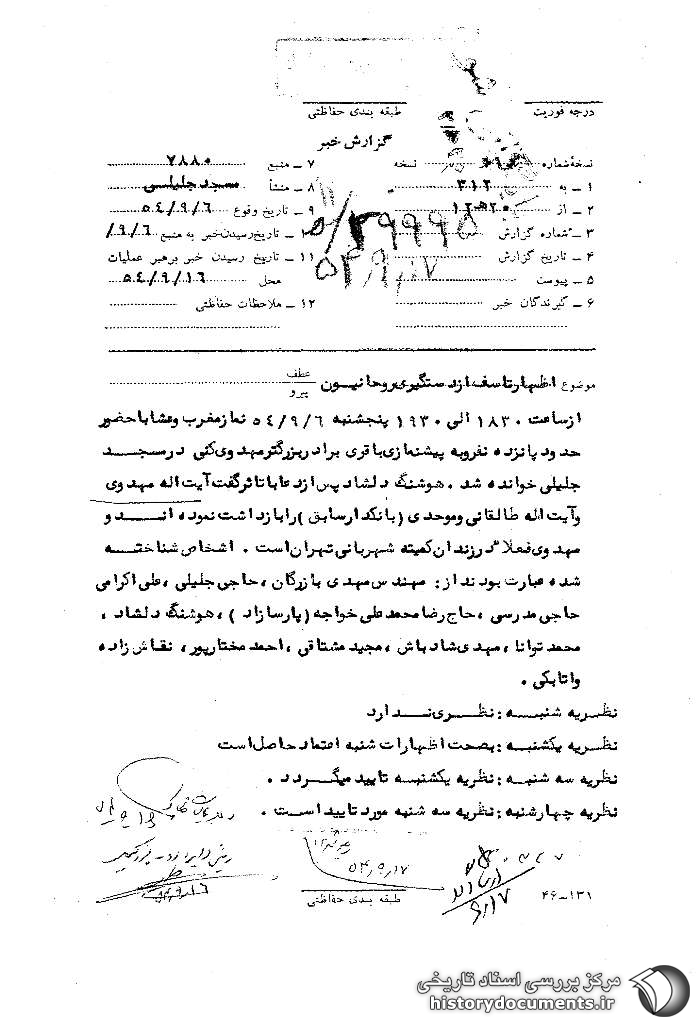 درجه فوریت
طبقه بندی حفاظتی
گزارش خبر
نسخه شماره نسخه
۱ ـ به ۳۱۲
۲ ـ از
۳ ـ شماره گزارش
۴ ـ تاریخ گزارش
۵ ـ پیوست
۶ ـ گیرندگان خبر
۷ ـ منبع ۷۸۸۰
۸ ـ منشأ مسجد جلیلی
۹ ـ تاریخ وقوع ۵٤/۹/۶
تاریخ رسیدن خبر به منبع ۹/۶/
۱۱ ـ تاریخ رسیدن خبر برهبر عملیات
محل ۵٤/۹/۱۶
۱۲ ـ ملاحظات حفاظتی
۵/۳۹۹۹۵
۵۴/۹/۱۷
موضوع اظهار تاسف از دستگیری روحانیون عطف
پیرو
از ساعت ۱۸۳۰ الی ۱۹۳۰ پنجشنبه ۵٤/۹/۶ نماز مغرب و عشا با حضور
حدود پانزده نفر و به پیشنمازی باقری برادر بزرگتر مهدوی کنی در مسجد
جلیلی خوانده شد . هوشنگ دلشاد پس از دعا با تاثر گفت آیت اله مهدوی
و آیت اله طالقانی و موحدی (بانکدار سابق) را بازداشت نموده اند و
مهدوی فعلا در زندان کمیته شهربانی تهران است . اشخاص شناخته
شده عبارت بودند از : مهندس مهدی بازرگان ، حاجی جلیلی ، علی اکرامی
حاجی مدرسی ، حاج رضا محمد علی خواجه (پارسا زاد) ، هوشنگ دلشاد ،
محمد توانا ، مهدی شادباش ، مجید مشتاقی ، احمد مختارپور ، نقاش زاده
و اتابکی .
نظریه شنبه : نظری ندارد
نظریه یکشنبه : بصحت اظهارات شنبه اعتماد حاصل است
نظریه سه شنبه : نظریه یکشنبه تایید میگردد .
نظریه چهارشنبه : نظریه سه شنبه مورد تایید است .
۵۴/۹/۱۷
۹/۱۷
طبقه بندی حفاظتی
۴۶-۱۳۱
مرکز بررسی اسناد تاریخی
historydocuments.ir